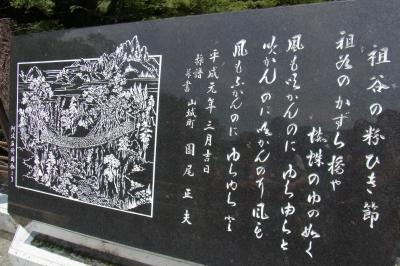 祖谷の粉ひき節
祖谷のかずら橋や
蜘蛛のゆの如く
風も吹かんのに ゆらゆらと
吹かんのに吹かんのに 風も
風も吹かんのに ゆらゆらと
平成元年三月吉日
採譜
並書 山城町 園尾正夫